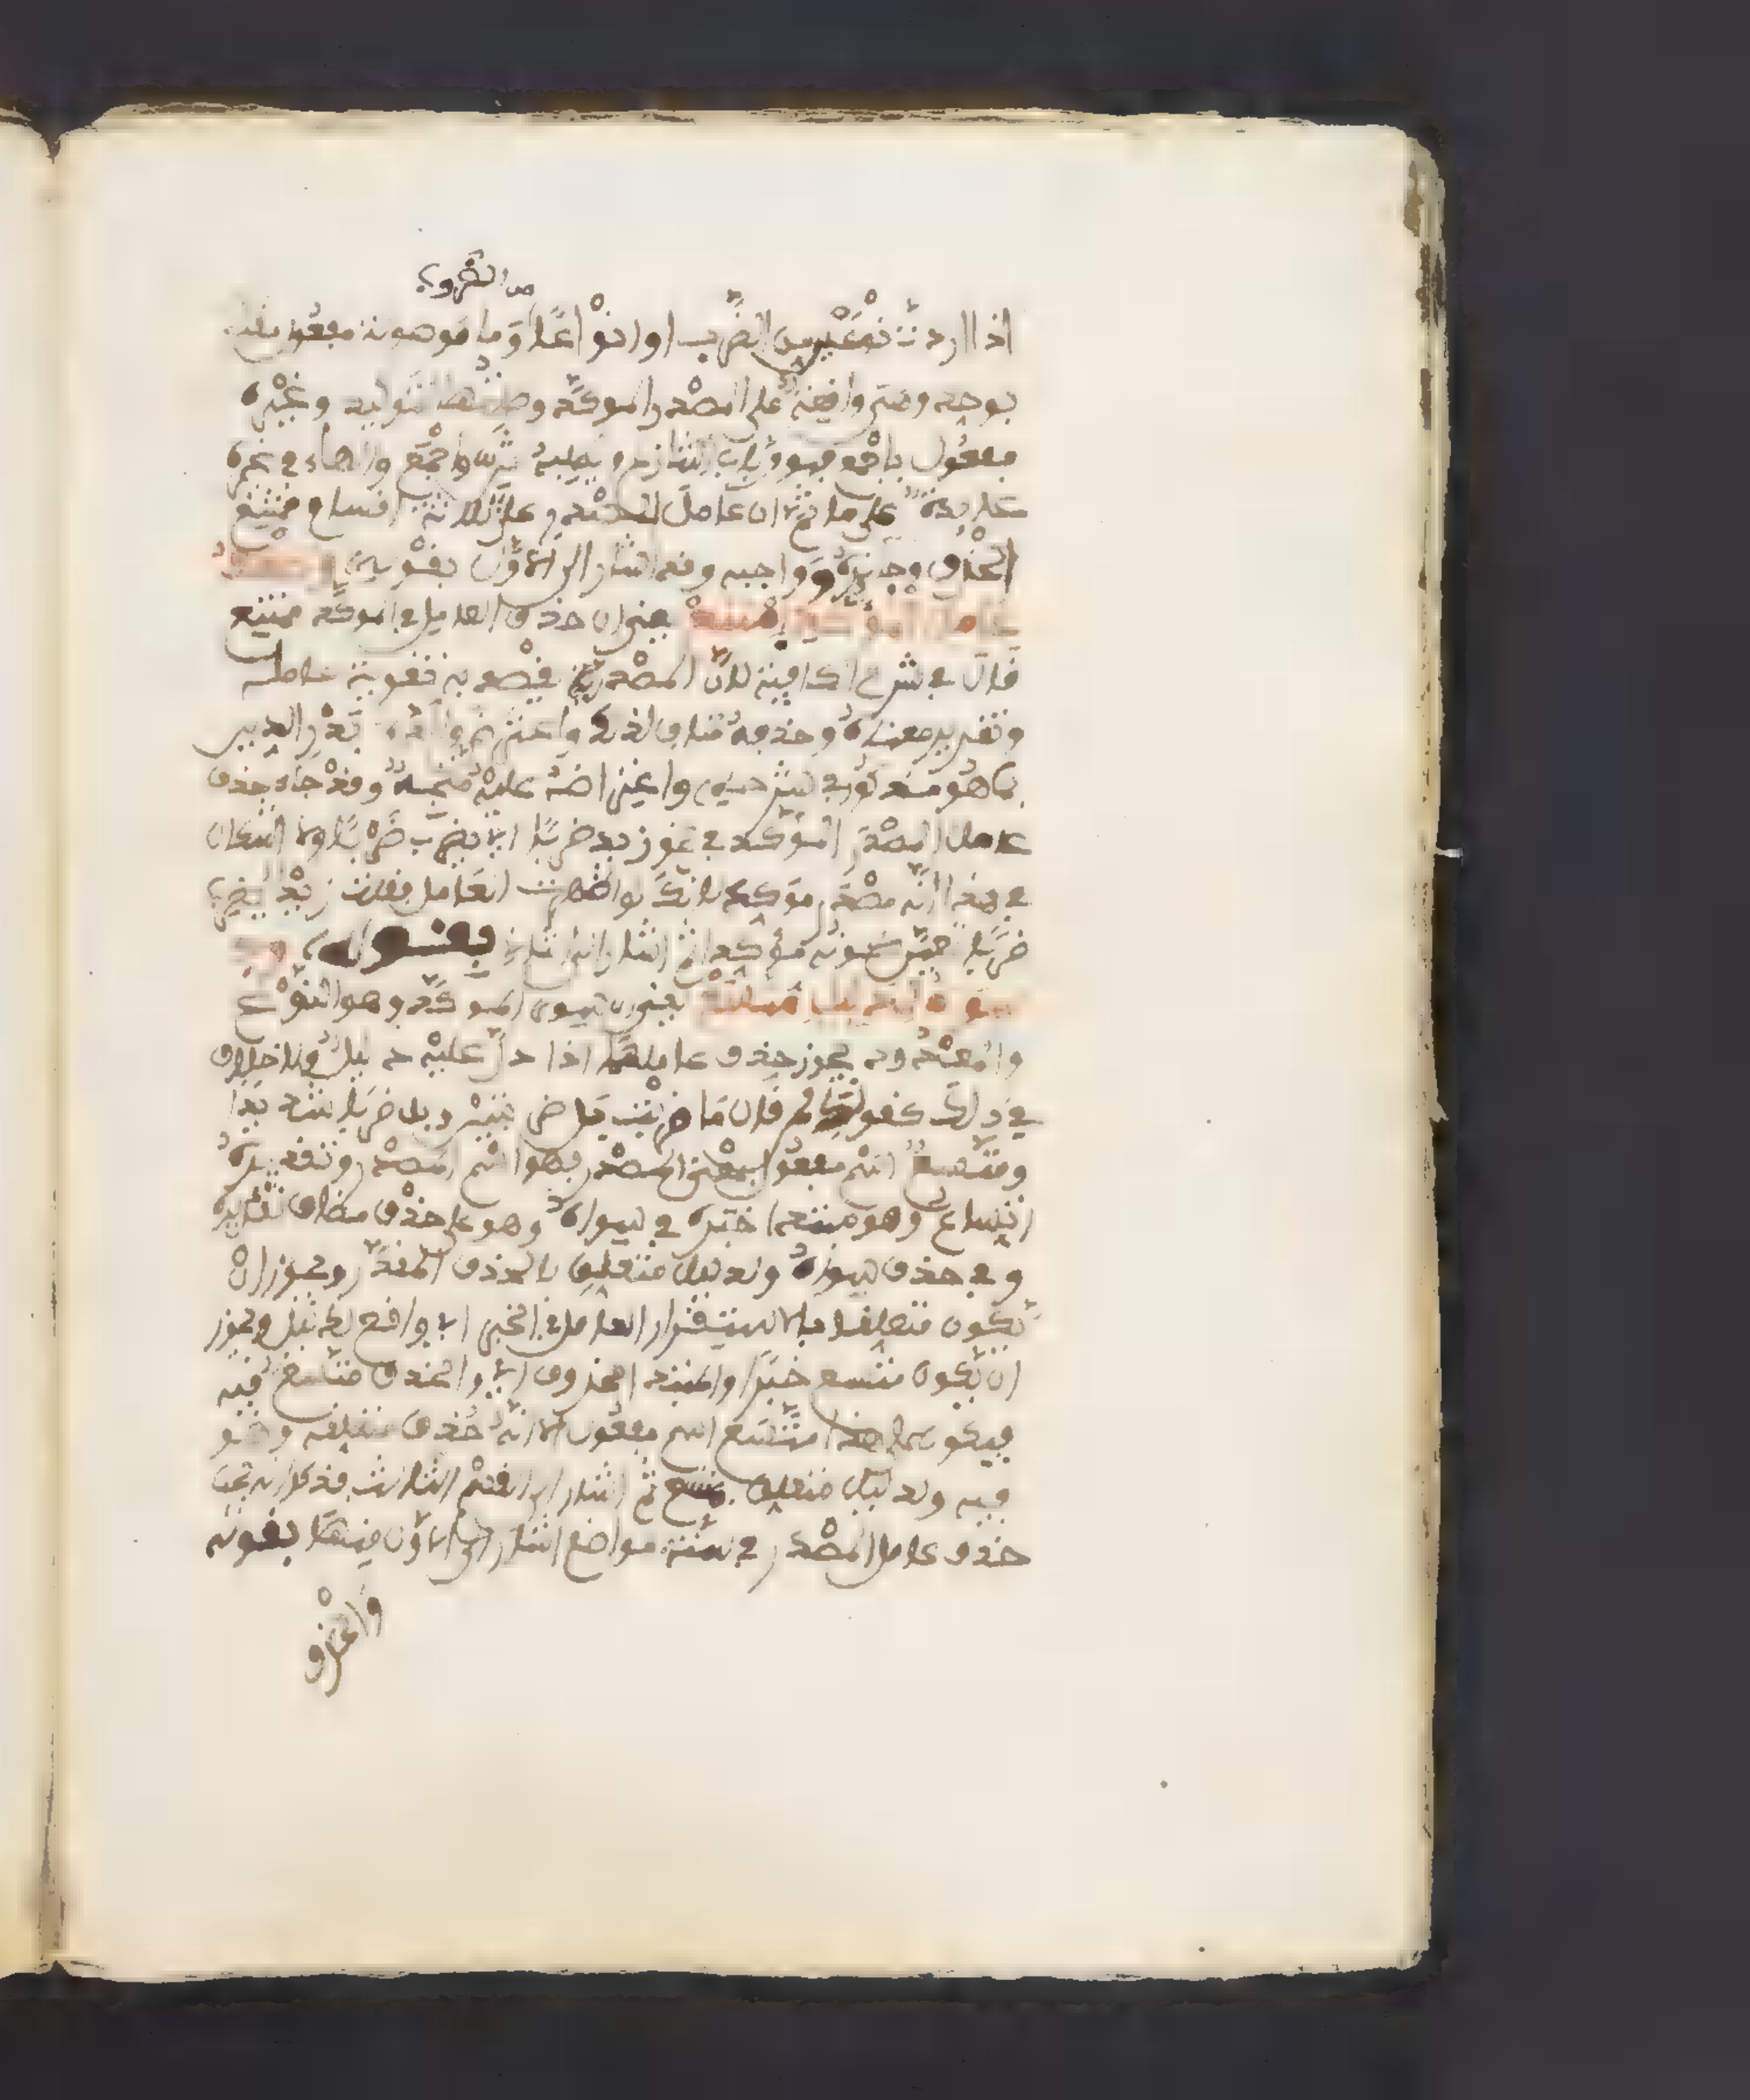 من الضروب
اذا اردت نوعين من الضرب او انواعا وما موصولة مفعول مقدم
بوحد وهي واقعة على المصدر الموكد وصلتها لتوكيد وغيره
مفعول باجمع فهو من باب التنازع ويطلبه ثن واجمع والهاء في غيره
عايدة على ما ثم ان عامل المصدر على ثلاثة اقسام ممتنع
الحذف وجايزه وواجبه وقد اشار الى الاول بقوله وحذف
عامل الموكد امتنع يعني ان حذف العامل في الموكد ممتنع
قال في شرح الكافية لان المصدر يقصد به تقوية عامله
وتقرير معناه وحذفه مناف لذلك واعترضه ولده بدر الدين
بما هو منقول في شرحه واعتراضه عليه متجه وقد جاء حذف
عامل المصدر الموكد في نحو زيد ضربا اي يضرب ضربا ولا اشكال
في هذا انه مصدر موكد لانك لو اظهرت العامل فقلت زيد يضرب
ضربا تعين كونه موكدا ثم اشار الى الثاني بقوله وفي
سواه لدليل متسع يعني ان سوى الموكد وهو النوع
والمعدود يجوز حذف عاملهما اذا دل عليه دليل ولا خلاف
في ذلك كقولك لمن قال ما ضربت بل ضربتين وبل ضربا شديدا
ومتسع اسم مفعول بمعنى المصدر فهو اسم المصدر وتقديره
اتساع وهو مبتدا خبره في سواه وهو على حذف مضاف تقديره
وفي حذف سواه ولدليل متعلق بالحذف المقدر ويجوز ان
يكون متعلقا بالاستقرار العامل في الخبر اي واقع لدليل ويجوز
ان يكون متسع خبرا والمبتدا محذوف اي والحذف متسع فيه
فيكون على هذا متسع اسم مفعول الا انه حذف متعلقه وهو
فيه ولدليل متعلق بمتسع ثم اشار الى القسم الثالث فذكر انه يجب
حذف عامل المصدر في ستة مواضع اشار الى الاول منها بقوله
والحذف